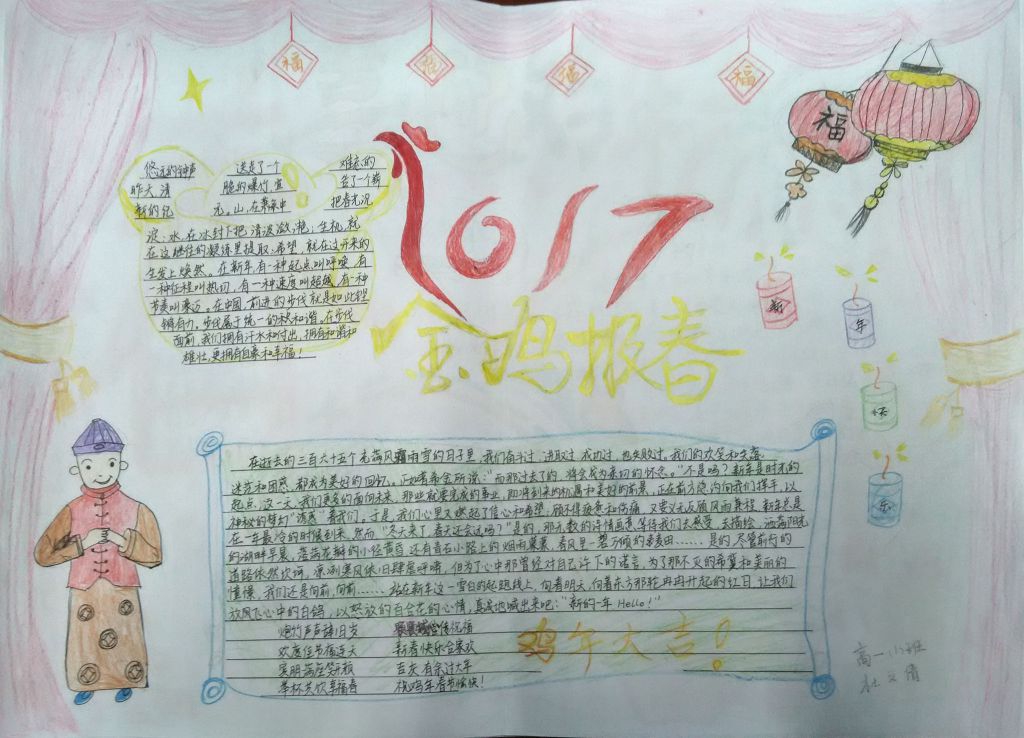 福
福
福
福
福
悠远的钟声 送走了一个 难忘的
昨天,清 脆的爆竹,宣 告了一个崭
新的纪 元。山,在萧条中 把春光沉
淀;水,在冰封下把清波潋滟,生机,就
在这继往的凝练里提取;希望,就在这开来的
生发上焕然。在新年,有一种起点叫呼唤,有
一种征程叫热切,有一种速度叫超越,有一种
节奏叫豪迈。在中国,前进的步伐就是如此铿
锵有力。步伐属于统一的和谐,在步伐
面前,我们拥有汗水和付出,拥有和谐和
雄壮,更拥有自豪和幸福!
2017
金鸡报春
新
年
快
乐
在逝去的三百六十五个充满风霜雨雪的日子里,我们奋斗过,进取过,成功过,也失败过,我们的欢笑和失落、
迷茫和困惑,都成为美好的回忆,正如普希金所说:“而那过去了的,将会成为亲切的怀念。”不是吗?新年是时光的
起点,这一天,我们更多的面向未来,那些就要完成的事业,即将到来的机遇和美好的前景,正在前方隐约向我们挥手,以
神秘的梦幻“诱惑”着我们。于是,我们心里又燃起了信心和希望,顾不得疲惫和伤痛,又要义无反顾风雨兼程,新年总是
在一年最冷的时候到来,然而“冬天来了,春天还会远吗?”是的,那无数的诗情画意等待我们去感受,去描绘,洒满阳光
的湖畔早晨,落满花瓣的小径黄昏,还有青石小路上的烟雨蒙蒙,春风里一碧万顷的麦田……是的,尽管前行的
道路依然坎坷,凛冽寒风依旧肆虐呼啸,但为了心中那曾经对自己许下的诺言,为了那不灭的希冀和美丽的
憧憬,我们还是向前,向前……站在新年这一雪白的起跑线上,向着明天,向着东方那轮冉冉升起的红日,让我们
放飞心中的白鸽,以怒放的百合花的心情,真诚地喊出来吧:“新的一年 Hello!”
炮竹声声辞旧岁 传祝福
欢度佳节福连天 新春快乐合家欢
宾朋满座笑开颜 吉庆有余过大年
举杯共饮幸福春 祝鸡年春节愉快!
鸡年大吉!
高一 班
杜文倩